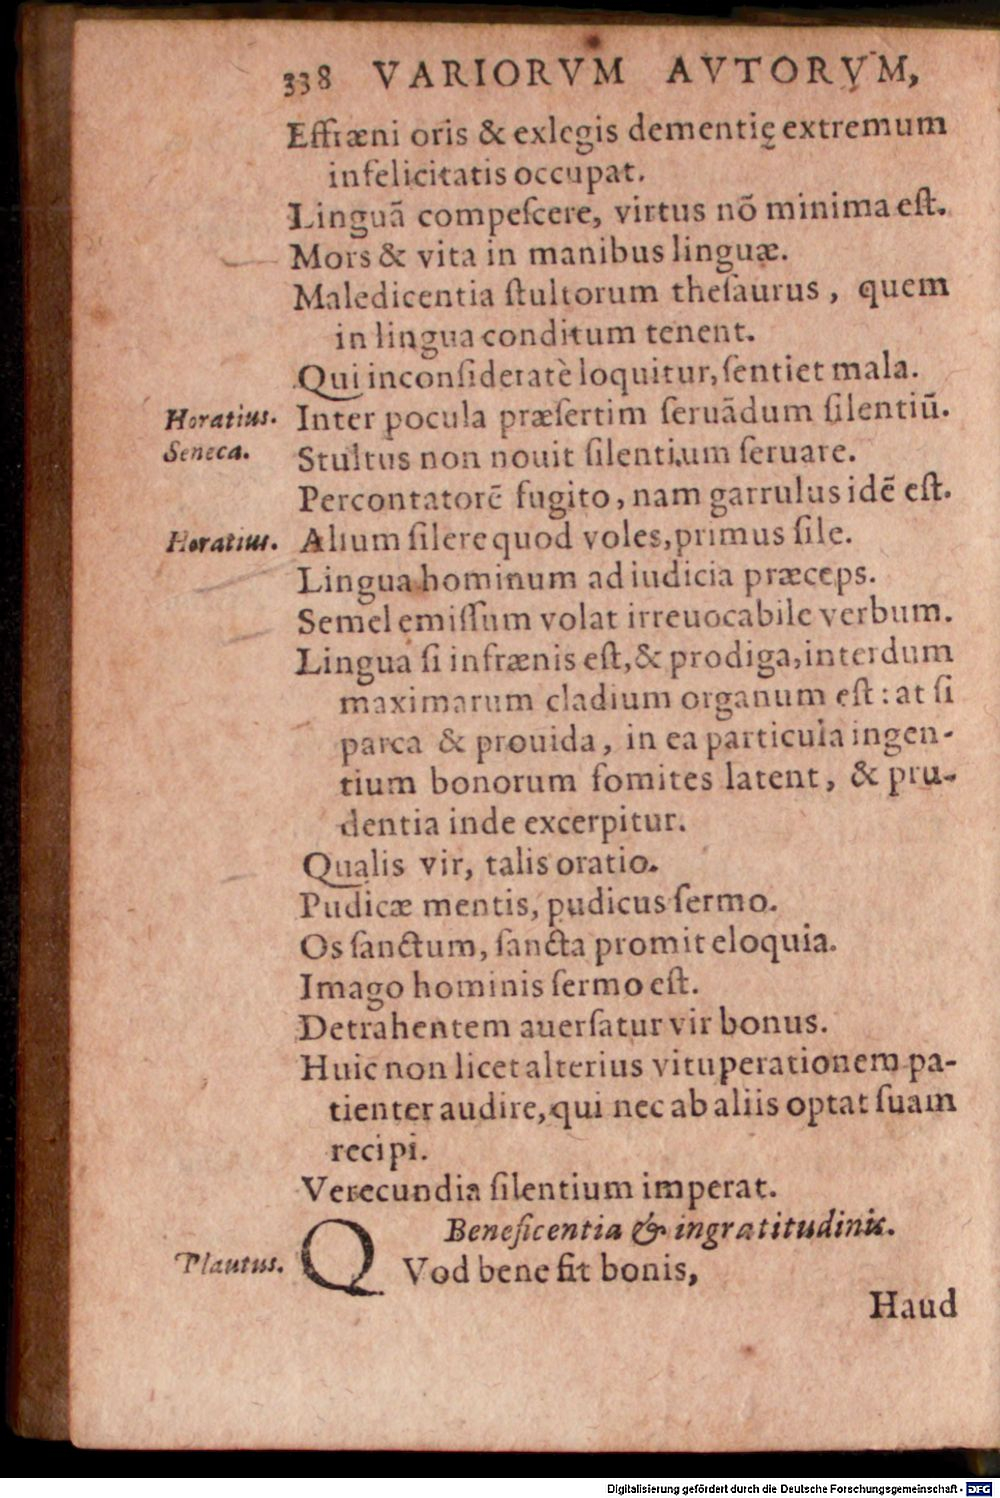 338 VARIORVM AVTORVM,
Effræni oris & exlegis dementię extremum
infelicitatis occupat.
Linguã compeſcere, virtus nõ minima eſt.
Mors & vita in manibus linguæ.
Maledicentia ſtultorum theſaurus, quem
in lingua conditum tenent.
Qui inconſideratè loquitur, ſentiet mala.
Horatius. Inter pocula præſertim ſeruãdum ſilentiũ.
Seneca. Stultus non nouit ſilentium ſeruare.
Percontatorẽ fugito, nam garrulus idẽ eſt.
Horatius. Alium ſilere quod voles, primus ſile.
Lingua hominum ad iudicia præceps.
Semel emiſſum volat irreuocabile verbum.
Lingua ſi infrænis eſt, & prodiga, interdum
maximarum cladium organum eſt: at ſi
parca & prouida, in ea particula ingen-
tium bonorum fomites latent, & pru-
dentia inde excerpitur.
Qualis vir, talis oratio.
Pudicæ mentis, pudicus ſermo.
Os ſanctum, ſancta promit eloquia.
Imago hominis ſermo eſt.
Detrahentem auerſatur vir bonus.
Huic non licet alterius vituperationem pa-
tienter audire, qui nec ab aliis optat ſuam
recipi.
Verecundia ſilentium imperat.
Beneficentia & ingratitudinis.
Plautus. QVod bene fit bonis,
Haud
Digitalisierung gefördert durch die Deutsche Forschungsgemeinschaft - DFG